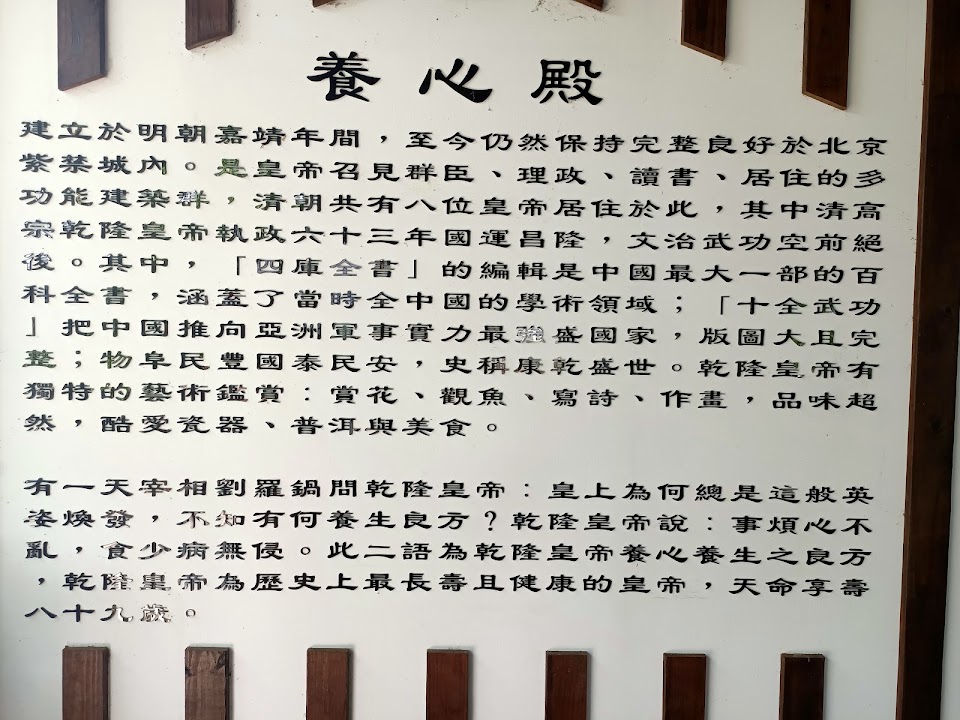 養心殿
建立於明朝嘉靖年間，至今仍然保持完整良好於北京
紫禁城內。是皇帝召見群臣、理政、讀書、居住的多
功能建築群，清朝共有八位皇帝居住於此，其中清高
宗乾隆皇帝執政六十三年國運昌隆，文治武功空前絕
後。其中，「四庫全書」的編輯是中國最大一部的百
科全書，涵蓋了當時全中國的學術領域；「十全武功
」把中國推向亞洲軍事實力最強盛國家，版圖大且完
整；物阜民豐國泰民安，史稱康乾盛世。乾隆皇帝有
獨特的藝術鑑賞：賞花、觀魚、寫詩、作畫，品味超
然，酷愛瓷器、普洱與美食。
有一天宰相劉羅鍋問乾隆皇帝：皇上為何總是這般英
姿煥發，不知有何養生良方？乾隆皇帝說：事煩心不
亂，食少病無侵。此二語為乾隆皇帝養心養生之良方
，乾隆皇帝為歷史上最長壽且健康的皇帝，天命享壽
八十九歲。